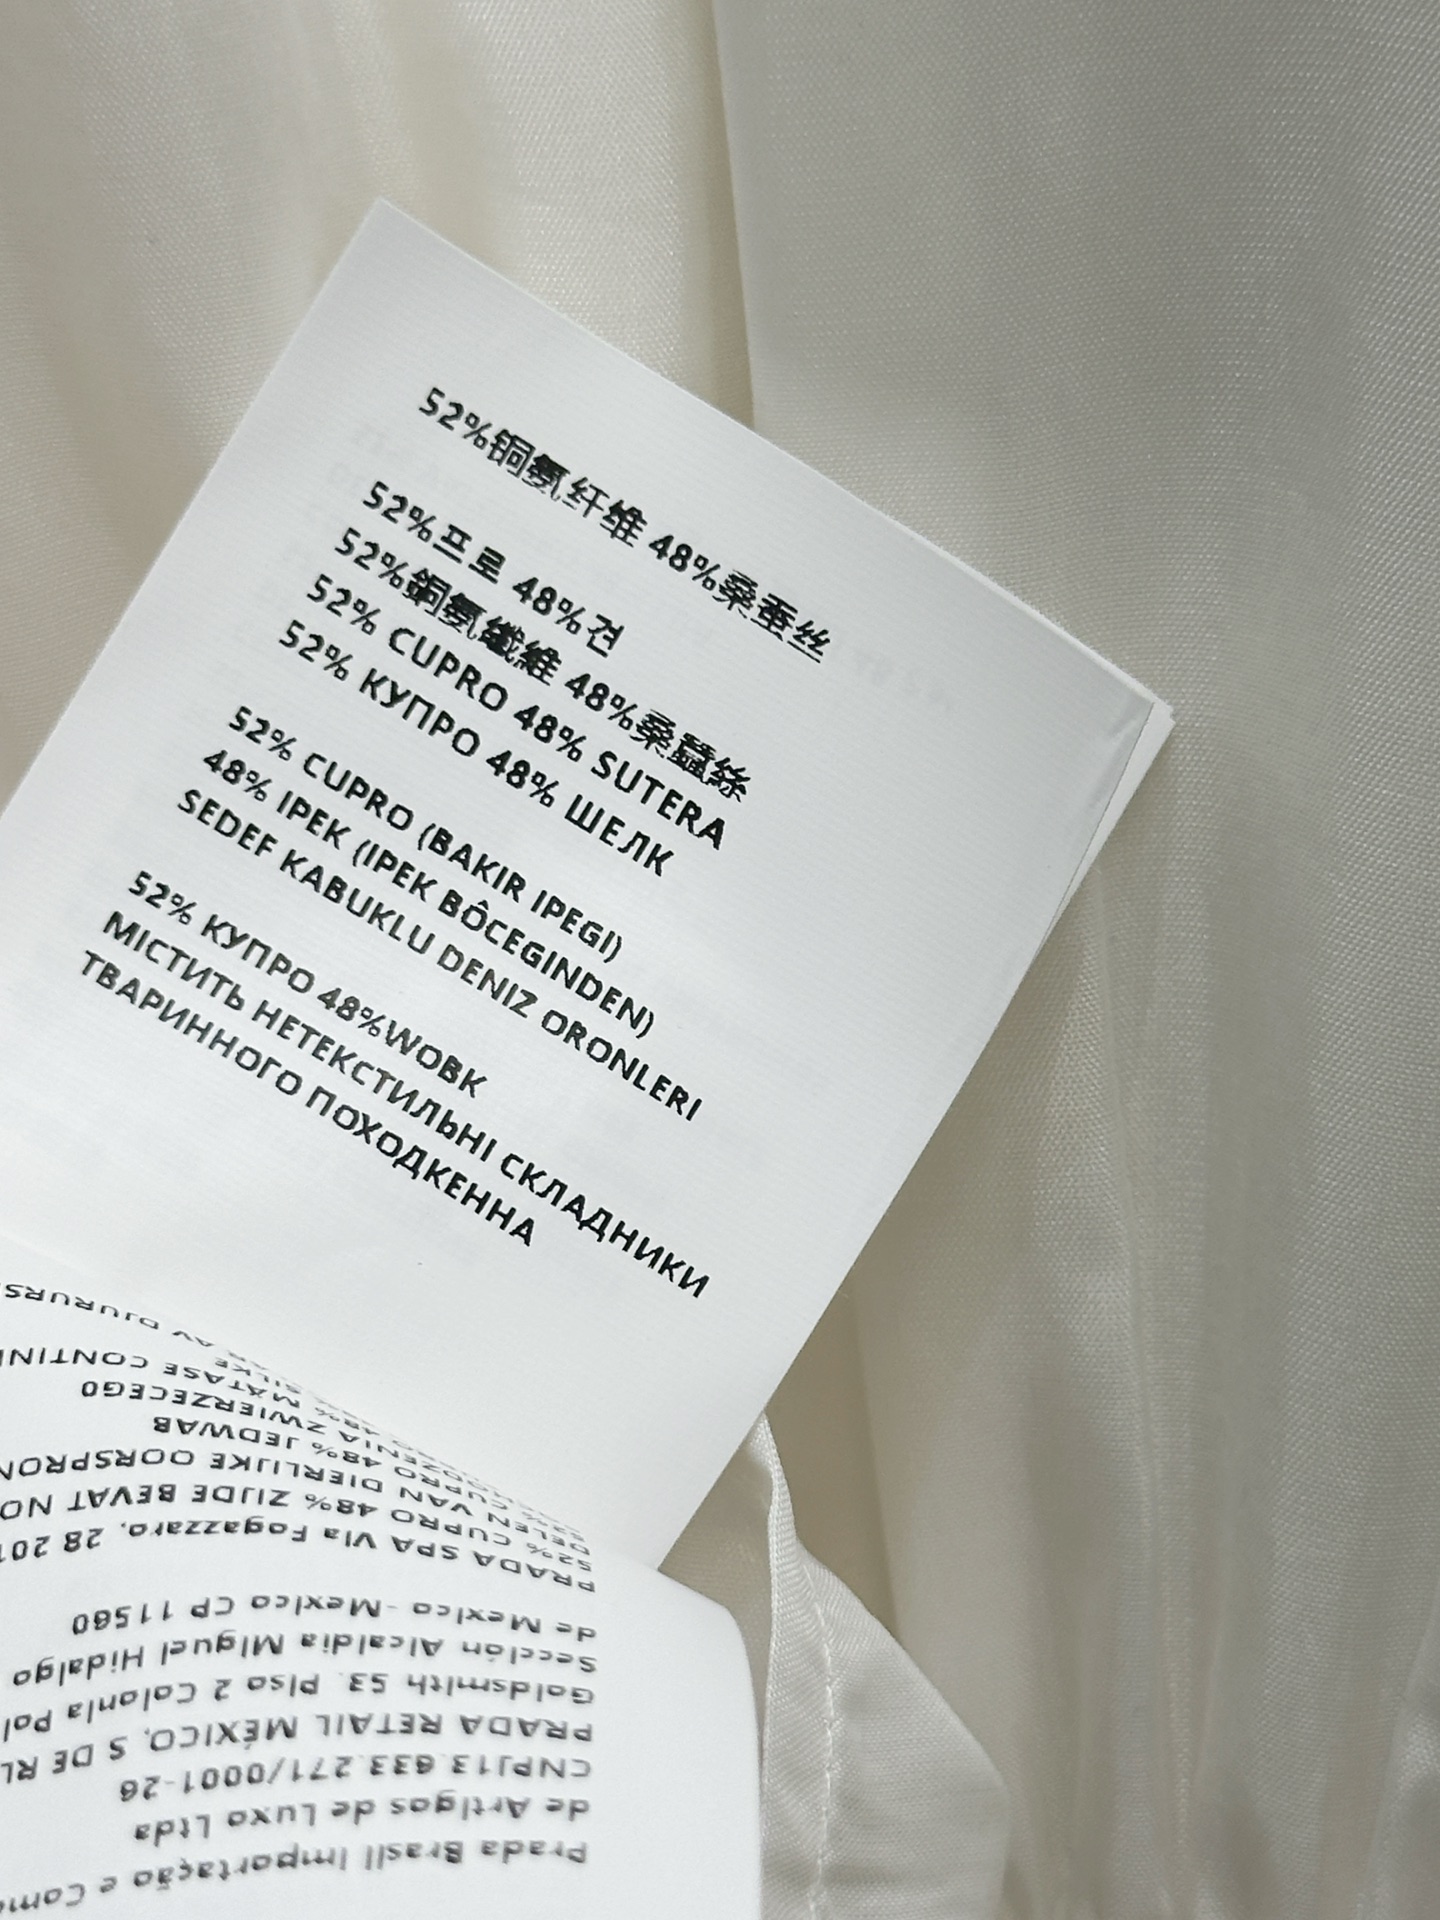 52%铜氨纤维 48%桑蚕丝
52%프로 48%견
52%銅氨纖維 48%桑蠶絲
52% CUPRO 48% SUTERA
52% КУПРО 48% ШЕЛК
52% CUPRO (BAKIR IPEGI)
48% IPEK (IPEK BÔCEGINDEN)
SEDEF KABUKLU DENIZ ORONLERI
52% КУПРО 48%WOBK
МІСТИТЬ НЕТЕКСТИЛЬНІ СКЛАДНИКИ
ТВАРИННОГО ПОХОДКЕННА
Prada Brasil Importação e
de Artigos de Luxo Ltda
CNPJ13.633.271/0001-26
PRADA RETAIL MÉXICO, S DE RL
Goldsmith 53. Piso 2 Colonla
Secclón Alcaldia Miguel Hidalgo
de Mexico -Mexico CP 11560
PRADA SPA Via Fogazzaro, 28
52% CUPRO 48% ZIJDE BEVAT
DELEN VAN DIERLIJKE
CUPRO 48% JEDWAB
ZWIERZECEGO
48% MĂTASE
SILKE
AV